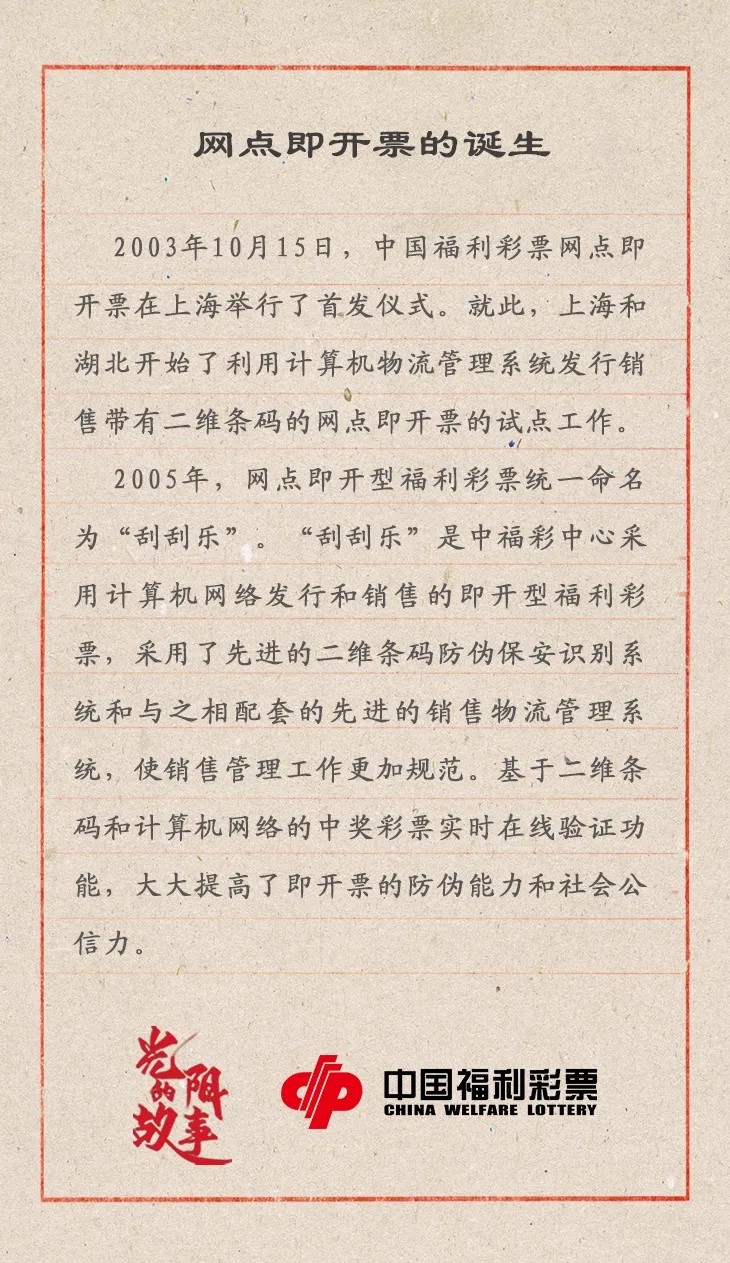 网点即开票的诞生
2003年10月15日，中国福利彩票网点即
开票在上海举行了首发仪式。就此，上海和
湖北开始了利用计算机物流管理系统发行销
售带有二维条码的网点即开票的试点工作。
2005年，网点即开型福利彩票统一命名
为“刮刮乐”。“刮刮乐”是中福彩中心采
用计算机网络发行和销售的即开型福利彩
票，采用了先进的二维条码防伪保安识别系
统和与之相配套的先进的销售物流管理系
统，使销售管理工作更加规范。基于二维条
码和计算机网络的中奖彩票实时在线验证功
能，大大提高了即开票的防伪能力和社会公
信力。
光阴的故事
中国福利彩票
CHINA WELFARE LOTTERY